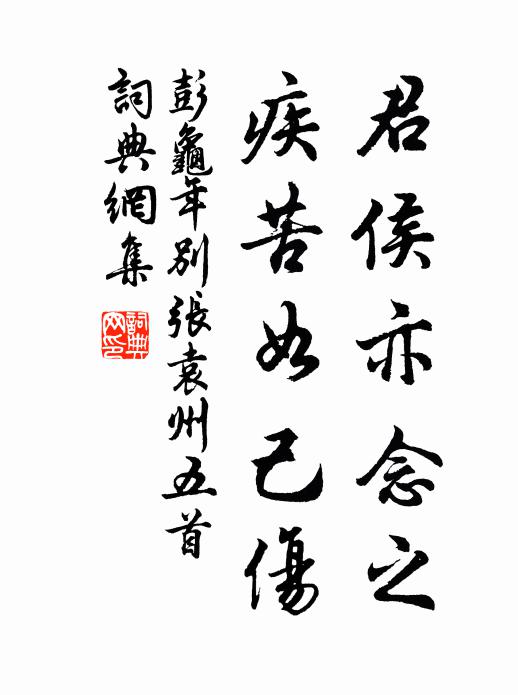 君侯亦念之
疾苦如己傷
彭龜年別張袁州五首
詞典網集
詞典網印